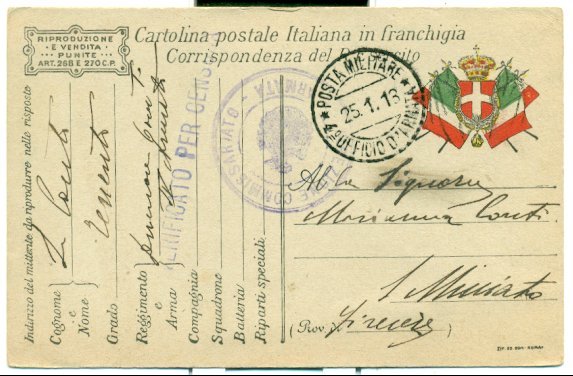 RIPRODUZIONE
E VENDITA
PUNITE
ART. 268 E 270 C.P.
Cartolina postale Italiana in franchigia
Corrispondenza del R. Esercito
POSTA MILITARE
25.1.18
VERIFICATO PER CENSURA
COMMISSARIATO
Indirizzo del mittente da riprodurre nelle risposte
Cognome
e
Nome
Conti
Grado
Tenente
Reggimento
e
Arma
Compagnia
Squadrone
Batteria
Riparti speciali
Alla Signora
Marianna Conti
S. Miniato
(Prov. di Firenze)